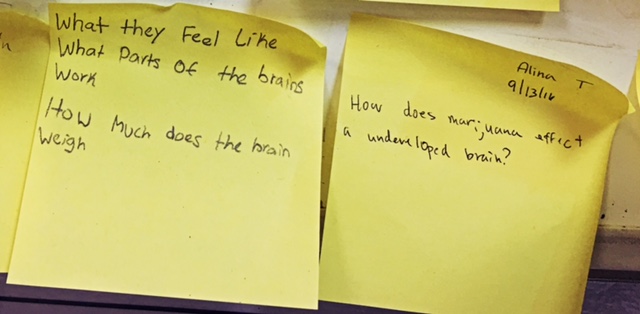 What they Feel Like
What Parts Of the brains
Work
How Much does the brain
Weigh
Alina T
9/13/16
How does marijuana effect
a undeveloped brain?